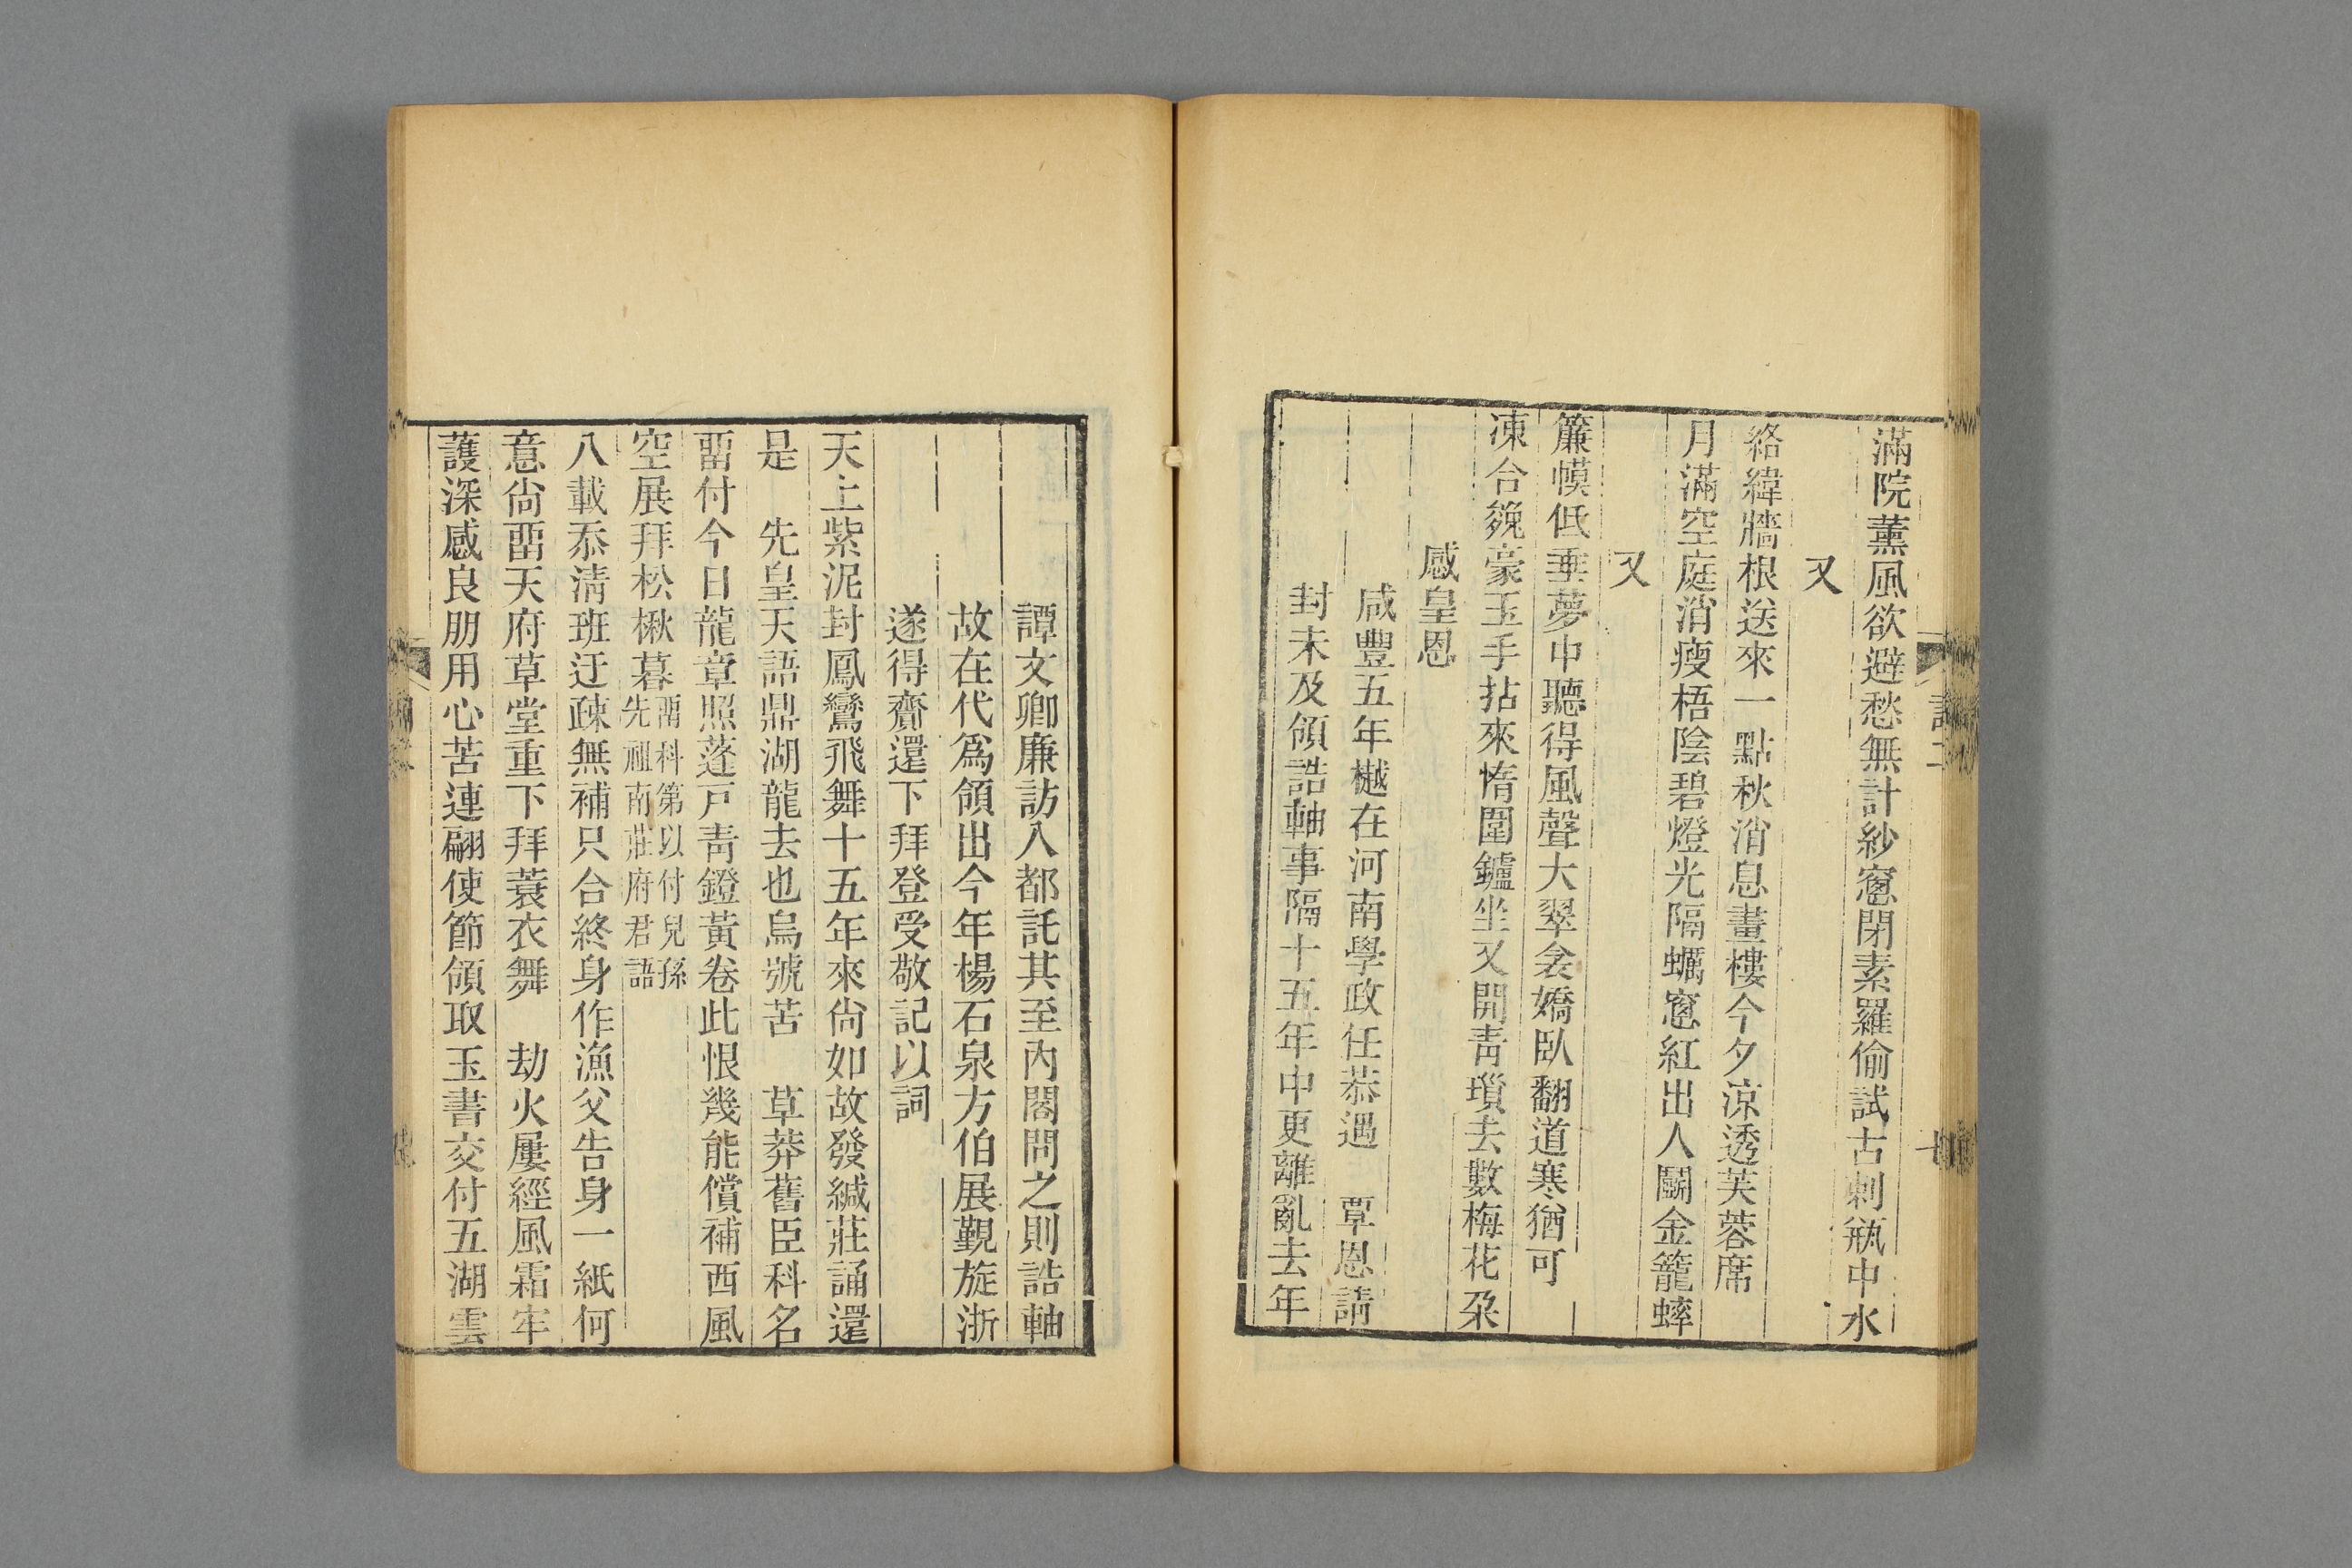 滿院薰風欲避愁無計紗窻閉素羅偷試古刺瓶中水
又
絡緯牆根送來一點秋消息畫樓今夕涼透芙蓉席
月滿空庭消瘦梧陰碧燈光隔蠣窻紅出人鬭金籠蟀
又
簾幙低垂夢中聽得風聲大翠衾嬌臥翻道寒猶可
凍合毚豪玉手拈來惰圍鑪坐又開青瑣去數梅花朶
感皇恩
咸豐五年樾在河南學政任恭遇　覃恩請
封未及領誥軸事隔十五年中更離亂去年
譚文卿廉訪入都託其至內閣問之則誥軸
故在代爲領出今年楊石泉方伯展覲旋浙
遂得齎還下拜登受敬記以詞
天上紫泥封鳳鸞飛舞十五年來尙如故發緘莊誦還
是　先皇天語鼎湖龍去也烏號苦　草莽舊臣科名
畱付今日龍章照蓬戸靑鐙黃卷此恨幾能償補西風
空展拜松楸暮畱科第以付兒孫先祖南莊府君語
八載忝清班迂疎無補只合終身作漁父告身一紙何
意尙畱天府草堂重下拜蓑衣舞　劫火屢經風霜牢
護深感良朋用心苦連翩使節領取玉書交付五湖雲